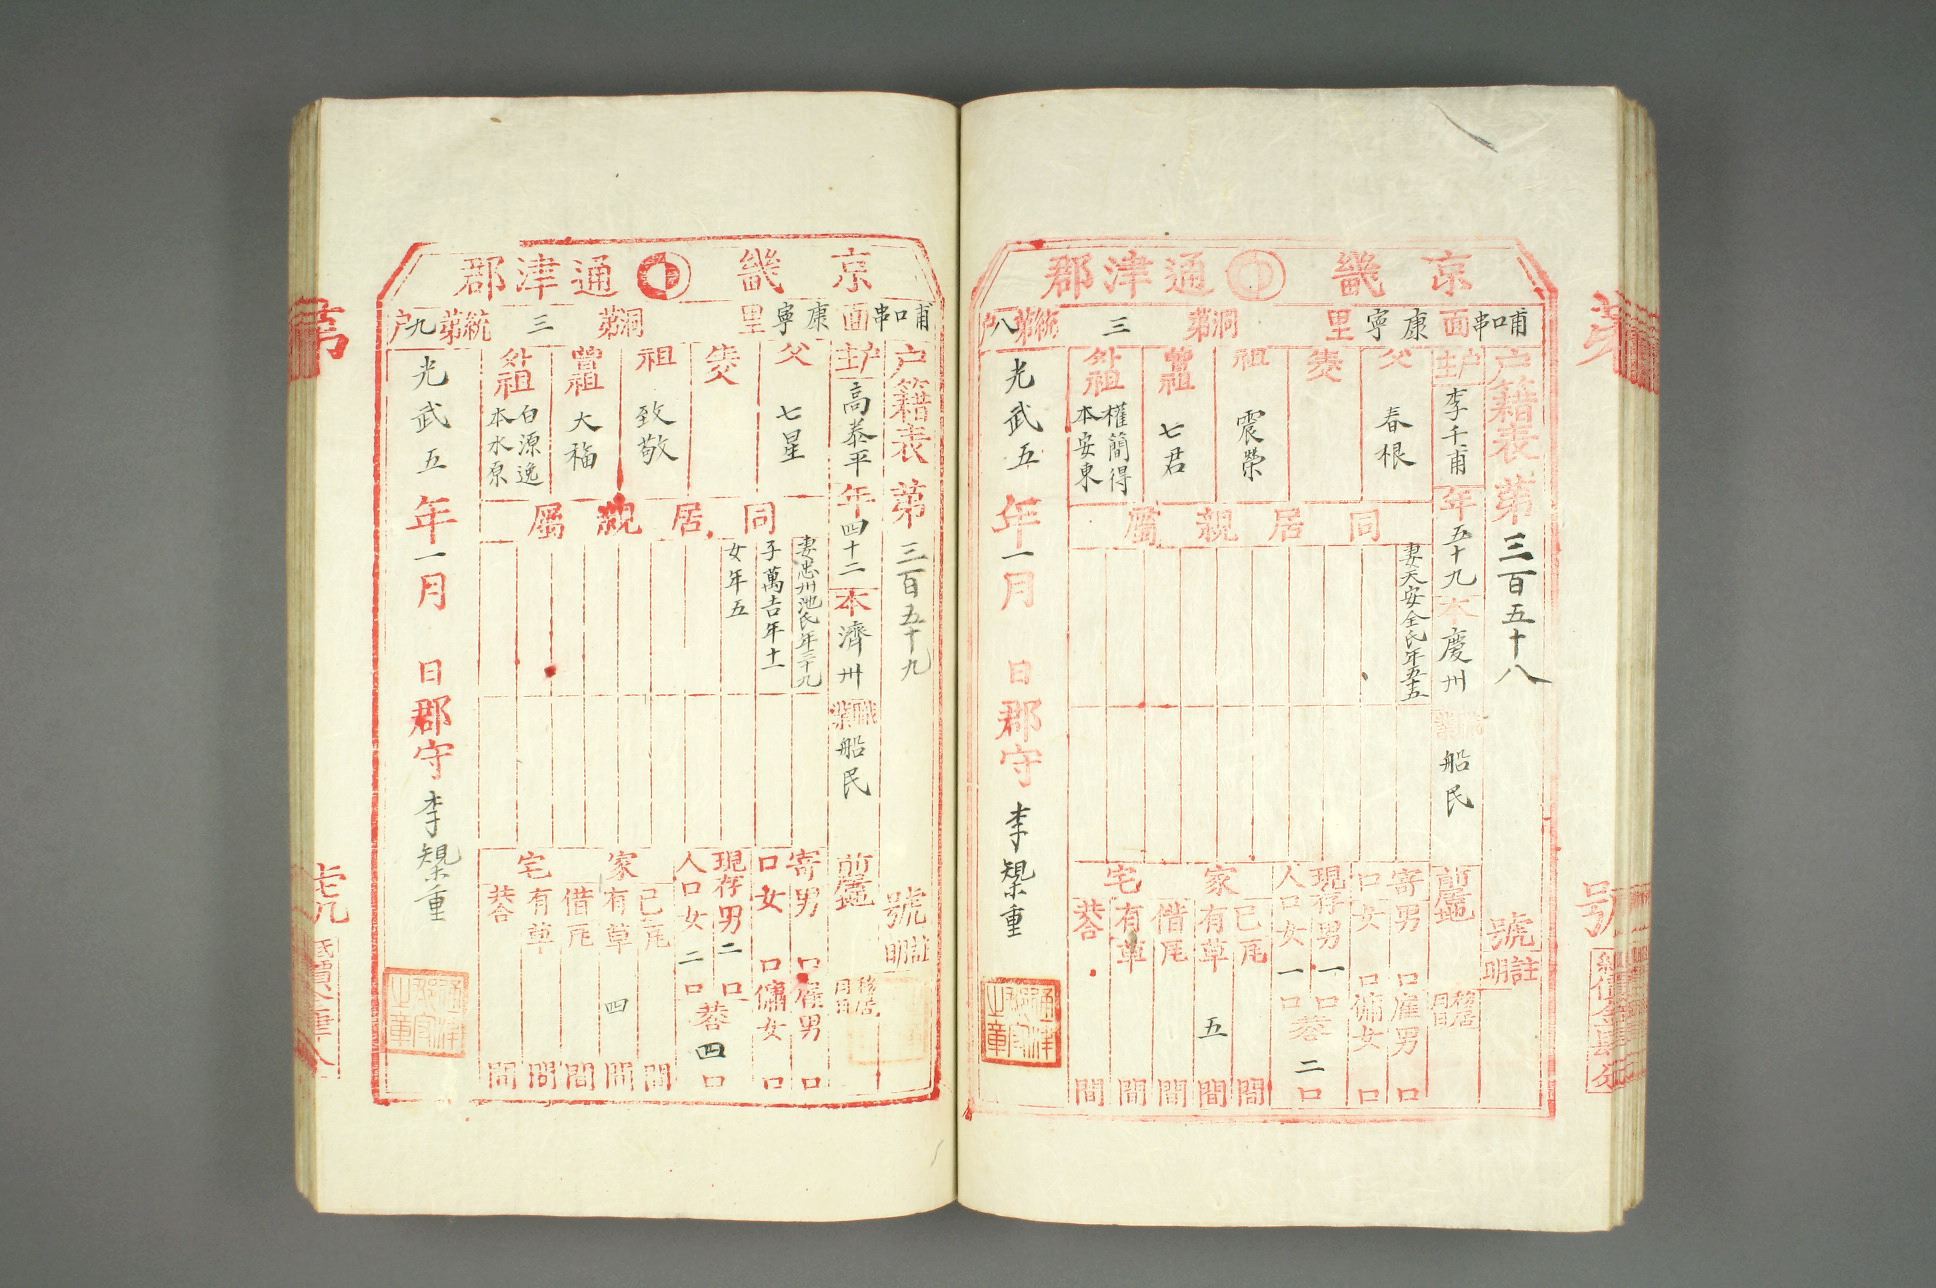 京畿 通津郡
哺口串面康寧里 洞第三統第八户
户籍表第三百五十八號 註明
户主李千甫年五十九本慶州職業船民前居地 移居月日
父春根
生父
祖震榮
曾祖七君
外祖權簡得本安東
同居親屬
妻天安全氏年五十五
寄口男口女口
雇男口傭女口
現存人口男一口女一口共合二口
家宅
己有瓦間
有草五間
借有瓦間
有草間
共合間
光武五年一月 日郡守李槼重
通津郡守之章
京畿 通津郡
哺口串面康寧里 洞第三統第九户
户籍表第三百五十九號 註明
户主高泰平年四十二本濟州職業船民前居地 移居月日
父七星
生父
祖致敬
曾祖大福
外祖白源逸本水原
同居親屬
妻忠州池氏年三十九
子萬吉年十一
女年五
寄口男口女口
雇男口傭女口
現存人口男二口女二口共合四口
家宅
己有瓦間
有草四間
借有瓦間
有草間
共合間
光武五年一月 日郡守李槼重
通津郡守之章